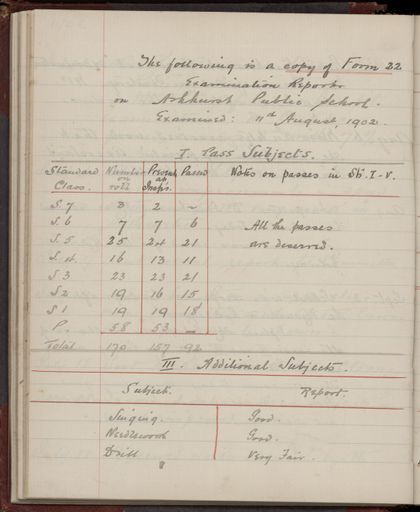 The following is a copy of Form 22
Examination Report
on Ashhurst Public School.
Examined: 11th August, 1902.
I. Pass Subjects.
Standard Class. Number on roll Present at Insp. Passed Notes on passes in Sts. I-V.
S.7 3 2 -
S.6 7 7 6 All the passes
S.5 25 24 21 are deserved.
S.4 16 13 11
S3 23 23 21
S2 19 16 15
S1 19 19 18
P. 58 53 -
Total 170 157 92
III. Additional Subjects.
Subject. Report.
Singing. Good.
Needlework Good.
Drill Very Fair.